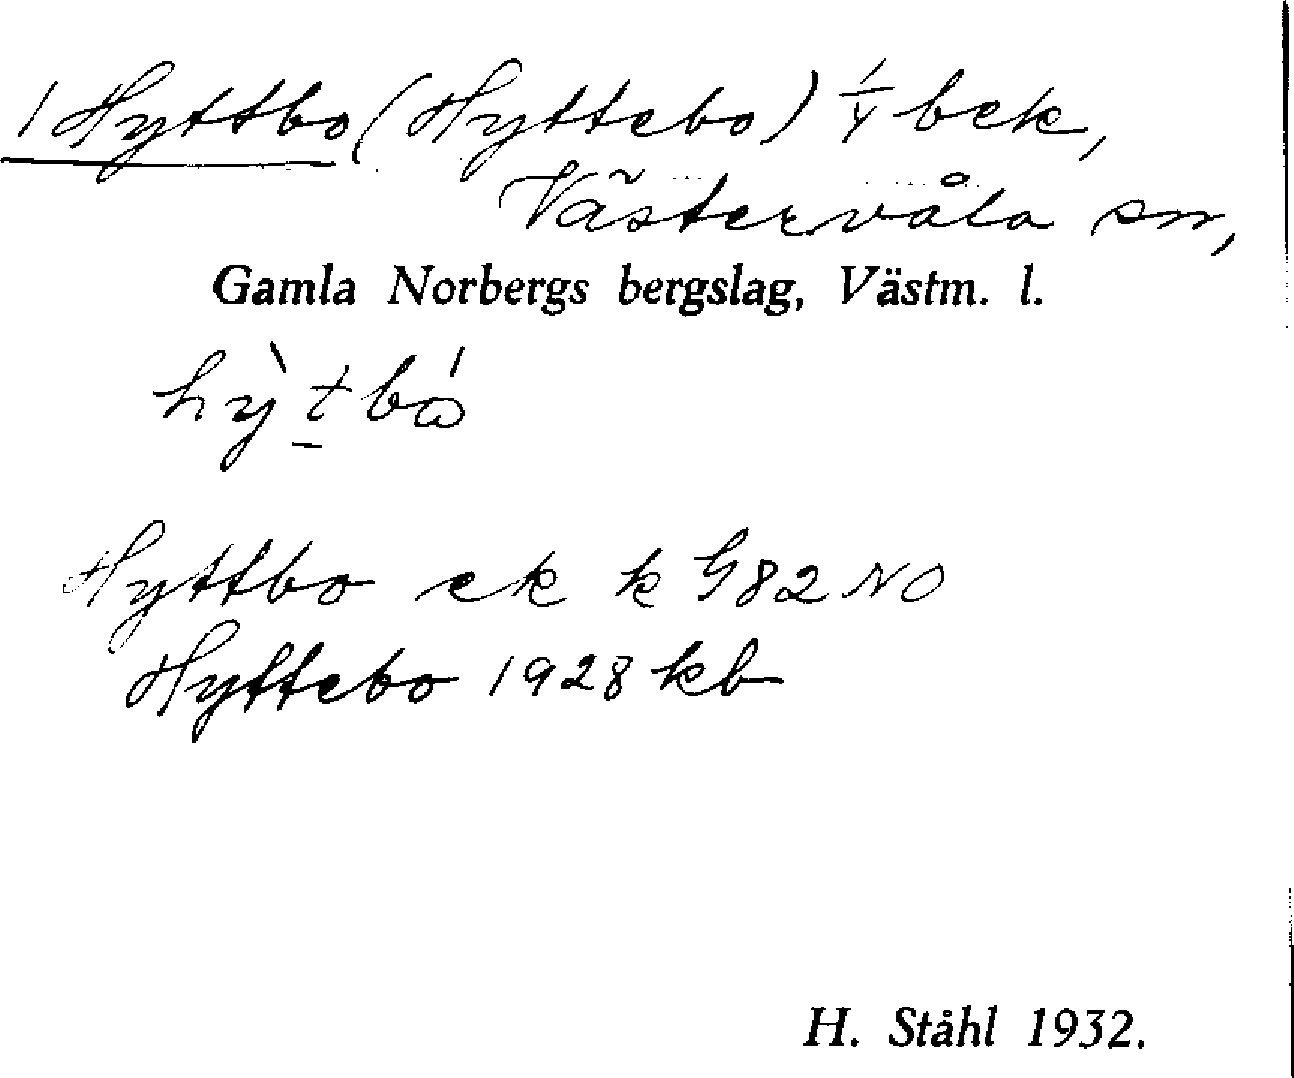 1 Hyttbo (Hyttebo) 1/v bek,
Västervåla sn,
Gamla Norbergs bergslag, Västm. l.
hỳtbó
Hyttbo ek k G82NO
Hyttebo 1928 kb
H. Ståhl 1932.